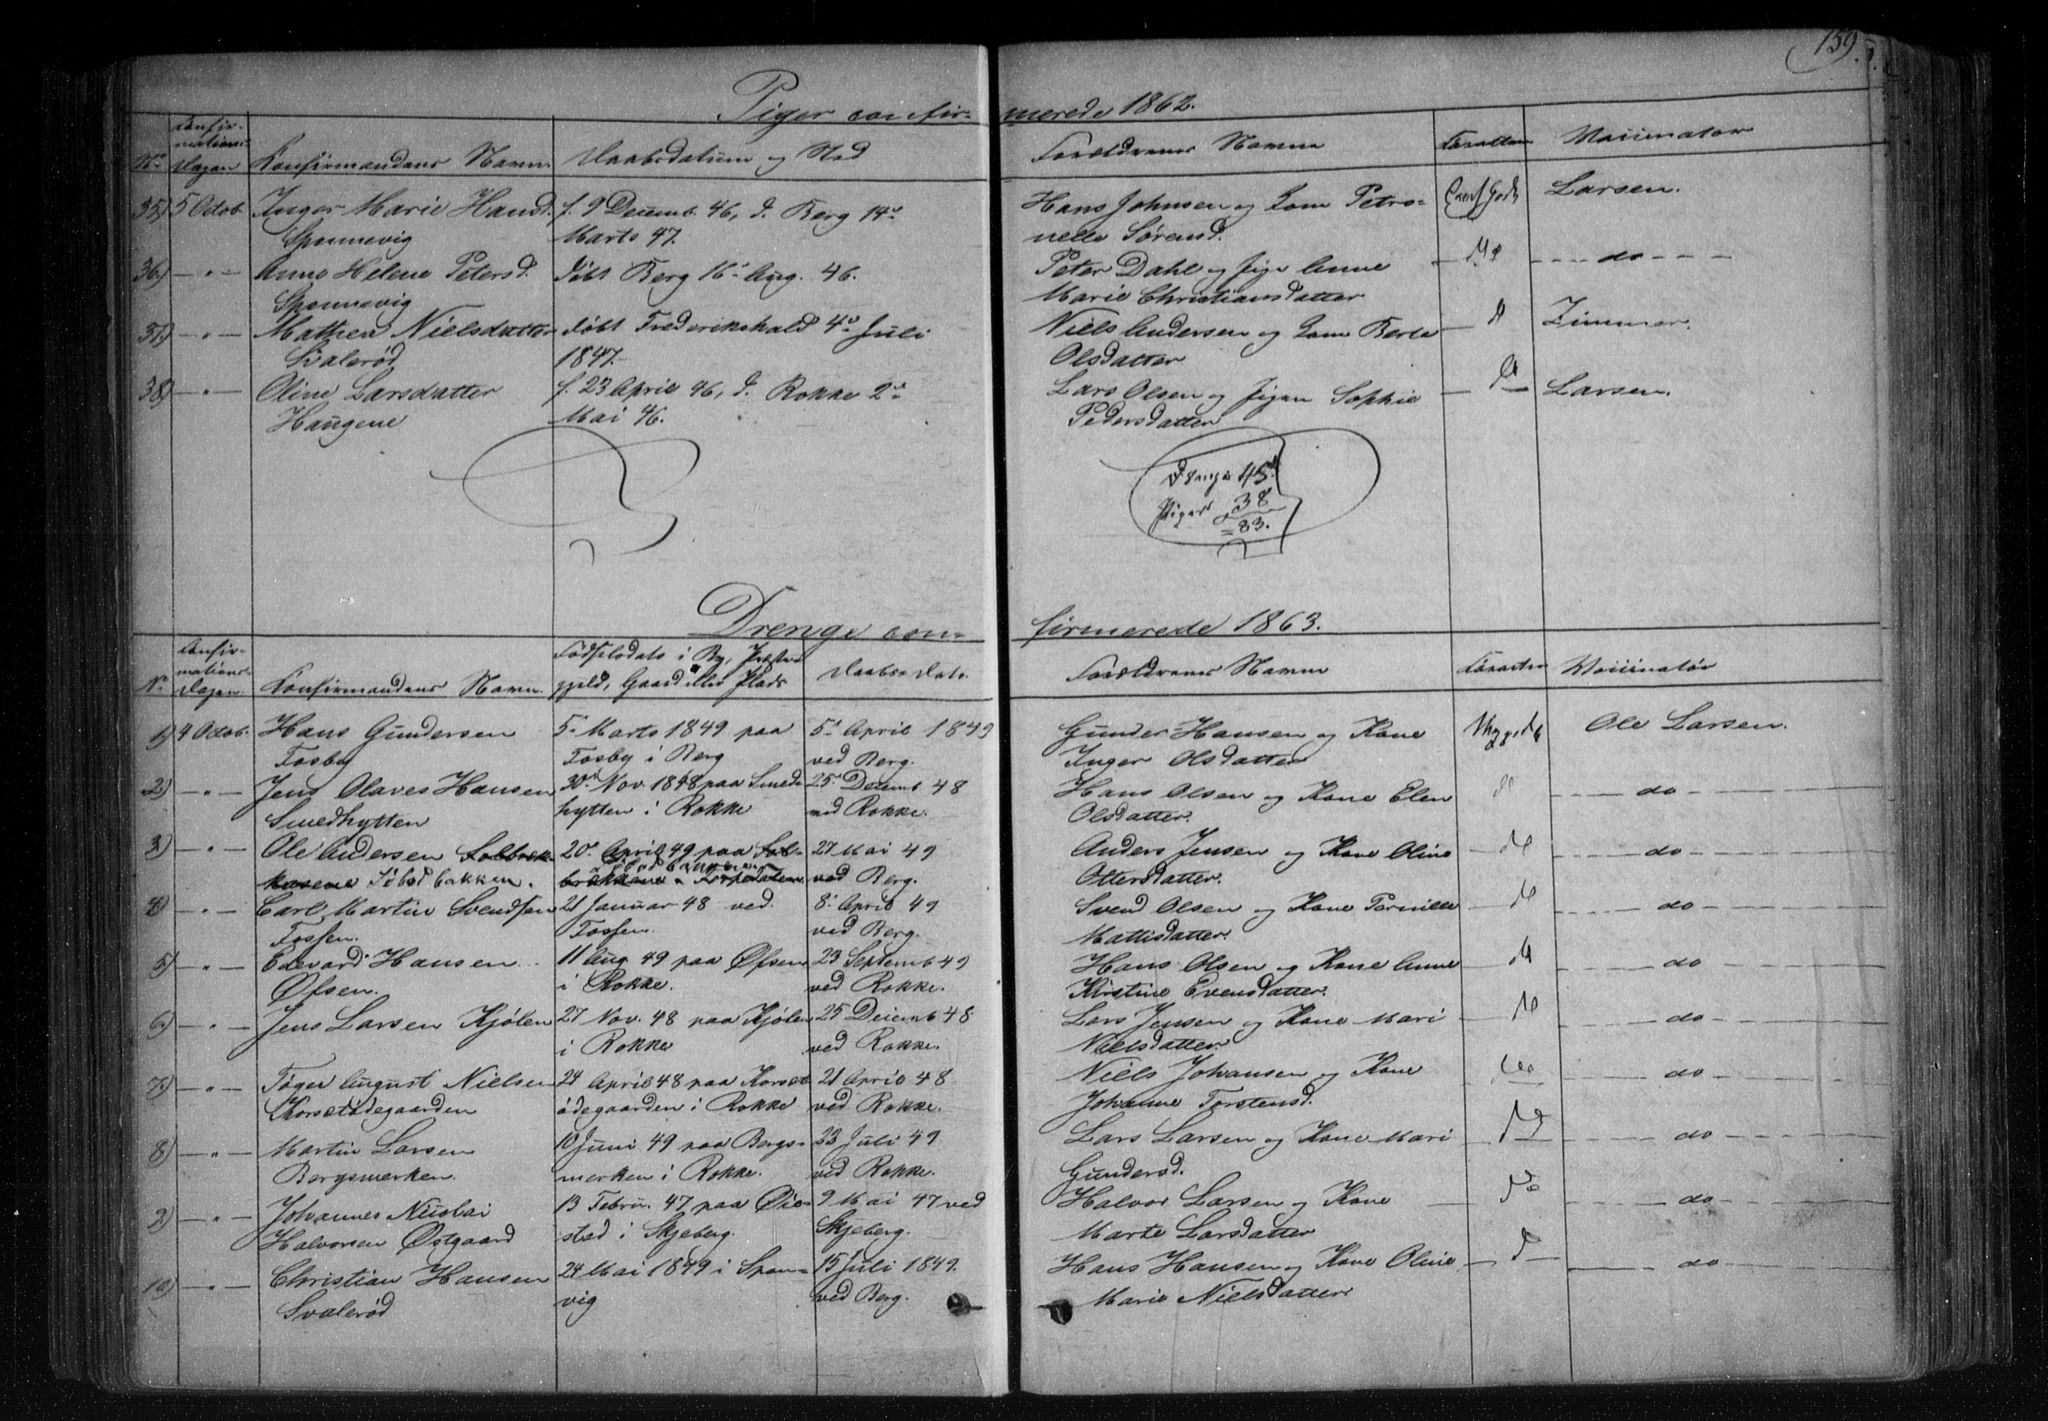 159.
Piger confirmerede 1862.
No Confirmations Dagen Konfirmandens Navn. Daabsdatum og Sted Forældrenes Navne Karakteren Vaccinator
35) 5 Octob. Inger Marie Hansd. f. 9 Decemb. 46, d. Berg 14de Hans Johnsen og Kone Petro= Larsen.
Sponnevig Marts 47. nelle Sørensd.
36) — " — Anne Helene Petersd. døbt Berg 16de Aug. 46. Peter Dahl og Pige Anne — do —
Sponnevig Marie Christiansdatter
37) — " — Mathea Nielsdatter døbt Frederikshald 4de Juli Niels Andersen og Kone Berte Zimmer.
Svalerød 1847. Olsdatter
38) — " — Oline Larsdatter f. 23 April 46, d. Rokke 2den Lars Olsen og Pigen Sophie Larsen.
Haugene Mai 46. Pedersdatter
Drenge 45
Piger 38
= 83.
Drenge confirmerede 1863.
No Confirmations Dagen Konfirmandens Navn. Fødselsdato i By, Præste
gjeld, Gaard eller Plads Daabs-Dat. Forældrenes Navne Karakter Vaccinatør
1) 4 Octob. Hans Gundersen 5te Marts 1849 paa 5te April 1849 Gunder Hansen og Kone Ole Larsen.
Fosby Fosby i Berg ved Berg. Inger Olsdatter
2) — " — Jens Olaves Hansen 30te Nov. 1848 paa Smed 25de Decemb 48 Hans Olsen og Kone Elen — do —
Smedhytten hytten i Rokke ved Rokke. Olsdatter.
3) — " — Ole Andersen 20de April 49 paa 27 Mai 49 Anders Jensen og Kone Oline — do —
Isebakken. ved Berg. Ottersdatter.
4) — " — Carl Martin Svendsen 21 Januar 48 ved 8de April 49 Svend Olsen og Kone Pernille — do —
Fossen. Fossen. ved Berg. Mattisdatter.
5) — " — Edevard Hansen 11 Aug 49 paa Øfsen 23 Septemb 49 Hans Olsen og Kone Anne — do —
Øfsen. i Rokke. ved Rokke. Kirstine Evensdatter.
6) — " — Jens Larsen Kjølen 27 Nov. 48 paa Kjølen 25 Decemb 48 Lars Jensen og Kone Mari — do —
i Rokke ved Rokke. Nielsdatter.
7) — " — Tøger August Nielsen 24 April 48 paa Korset 21 April 48 Niels Johansen og Kone — do —
Korsetødegaarden ødegaarden i Rokke ved Rokke. Johanne Torstensd.
8) — " — Martin Larsen 10 Juni 49 paa Bergs= 22 Juli 49 Lars Larsen og Kone Mari — do —
Bergsmerken. merken i Rokke. ved Rokke. Gundersd.
9) — " — Johannes Nicolai 13 Febru. 47 paa Øie= 9 Mai 47 ved Halvor Larsen og Kone — do —
Halvorsen Østgaard stad i Skjeberg. Skjeberg. Marte Larsdatter
10) — " — Christian Hansen 24 Mai 1849 i Spon= 15 Juli 1849. Hans Hansen og Kone Oline — do —
Svalerød vig ved Berg. Marie Nielsdatter